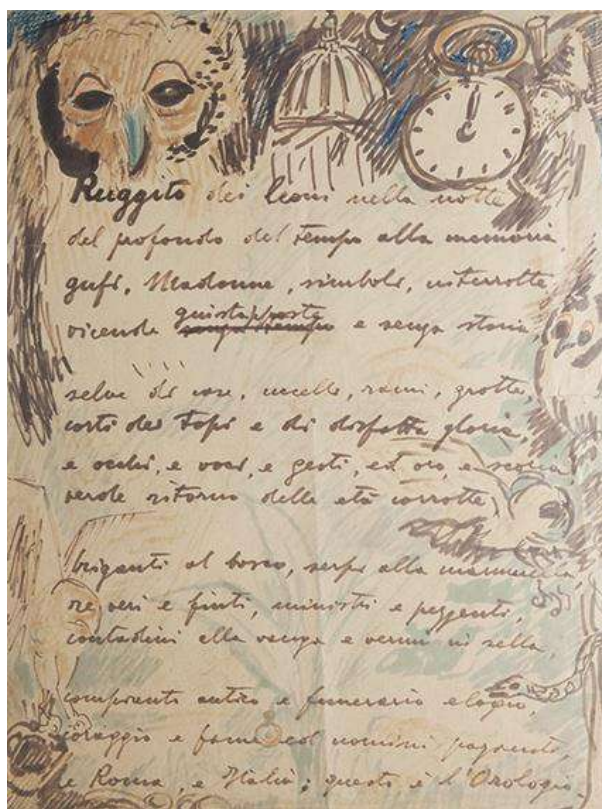 Ruggito dei leoni nella notte
del profondo del tempo alla memoria,
gufi, Madonne, simboli, interrotte
vicende giustapposte e senza storia,
selve di case, uccelli, rami, grotte,
corti dei topi e di disfatta gloria,
e occhi, e voci, e gesti, ed oro, e scoria
verde ritorno delle età corrotte,
briganti al bosco, serpi alla mammella,
re veri e finti, ministri e pezzenti,
contadini alla vanga e vermi in sella,
compianto antico e funerario elogio,
coraggio e fame ed uomini
e Roma, e Italia; questo è l'Orologio.